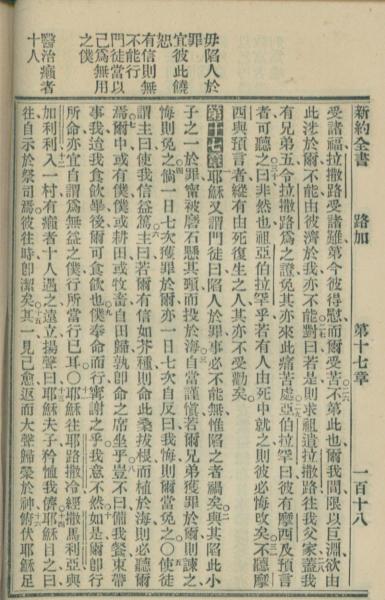 新約全書 路加 第十七章 一百十八
受諸福拉撒路受諸難今彼得慰而爾受苦不第此也爾我間限以巨淵欲由
此泩於爾不能由彼濟於我亦不能對曰若是則求祖遣拉撒路往我父家蓋我
有兄弟五令拉撒路爲之證免其亦來此痛苦處亞伯拉罕曰彼有摩西及預言
者可聽之曰非然也祖亞伯拉罕乎若有人由死中就之則彼必悔改矣不聽摩
西與預言者縱有由死復生之人其亦不受勸矣
第十七章耶穌又謂門徒曰陷人於罪事必不能無惟陷之者禍矣與其陷此小
子之一於罪甯被磨石懸其頸而投於海自當謹愼若爾兄弟獲罪於爾則諫之
悔則免之倘一日七次獲罪於爾亦一日七次自反曰我悔則爾當免之〇使徒
謂主曰使我信益篤主曰若爾有信如芥種則命此桑拔根而植於海則必聽爾
焉爾中或有僕僕或耕田或牧畜自田歸孰卽命之席坐乎豈不曰備我餐束帶
事我迨我食飲畢後爾可食飲也僕奉命而行甯謝之乎我意不然如是爾卽行
所命亦宜自謂爲無益之僕行所當行已耳〇耶穌往耶路撒冷經撒馬利亞與
加利利入一村有癩者十人遇之遠立揚聲曰耶穌夫子矜恤我儕耶穌目之曰
往自示於祭司焉彼往時卽潔矣其一見己愈返而大聲歸榮於神俯伏耶穌足
毋陷人於
罪
宜彼此饒
恕
有信則無
不能行
門徒當以
己爲無用
之僕
醫治癩者
十人